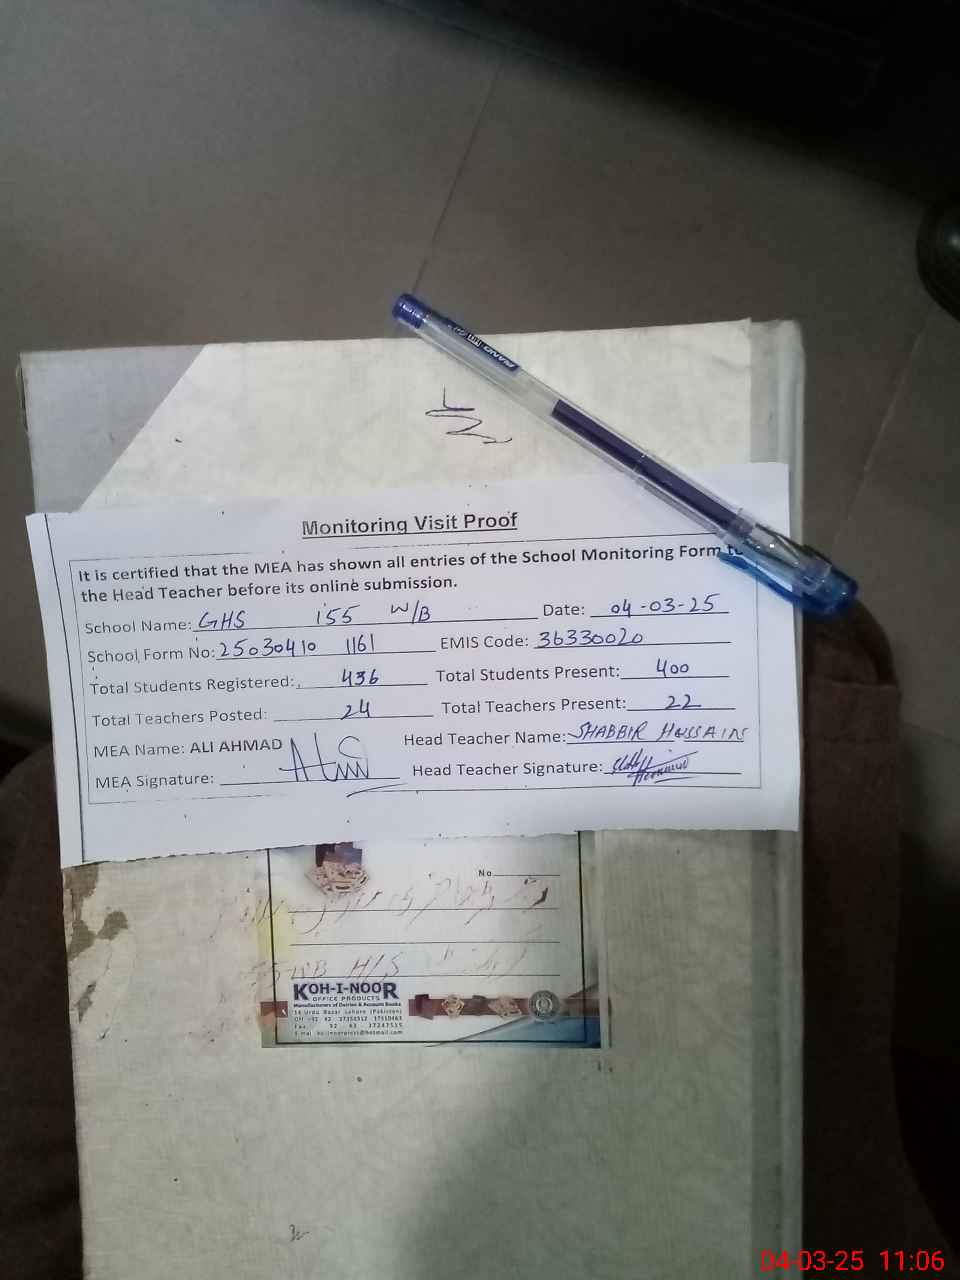 RANG
Monitoring Visit Proof
It is certified that the MEA has shown all entries of the School Monitoring Form to
the Head Teacher before its online submission.
School Name: GHS 155 W/B Date: 04-03-25
School Form No: 25030410 1161 EMIS Code: 36330020
Total Students Registered: 436 Total Students Present: 400
Total Teachers Posted: 24 Total Teachers Present: 22
MEA Name: ALI AHMAD Head Teacher Name: SHABBIR HUSSAIN
MEA Signature: Head Teacher Signature:
No
WB H/S
KOH-I-NOOR
OFFICE PRODUCTS
Manufacturers of Dairies & Account Books
14 Urdu Bazar Lahore (Pakistan)
Fax: 92 42 37247515
04-03-25 11:06